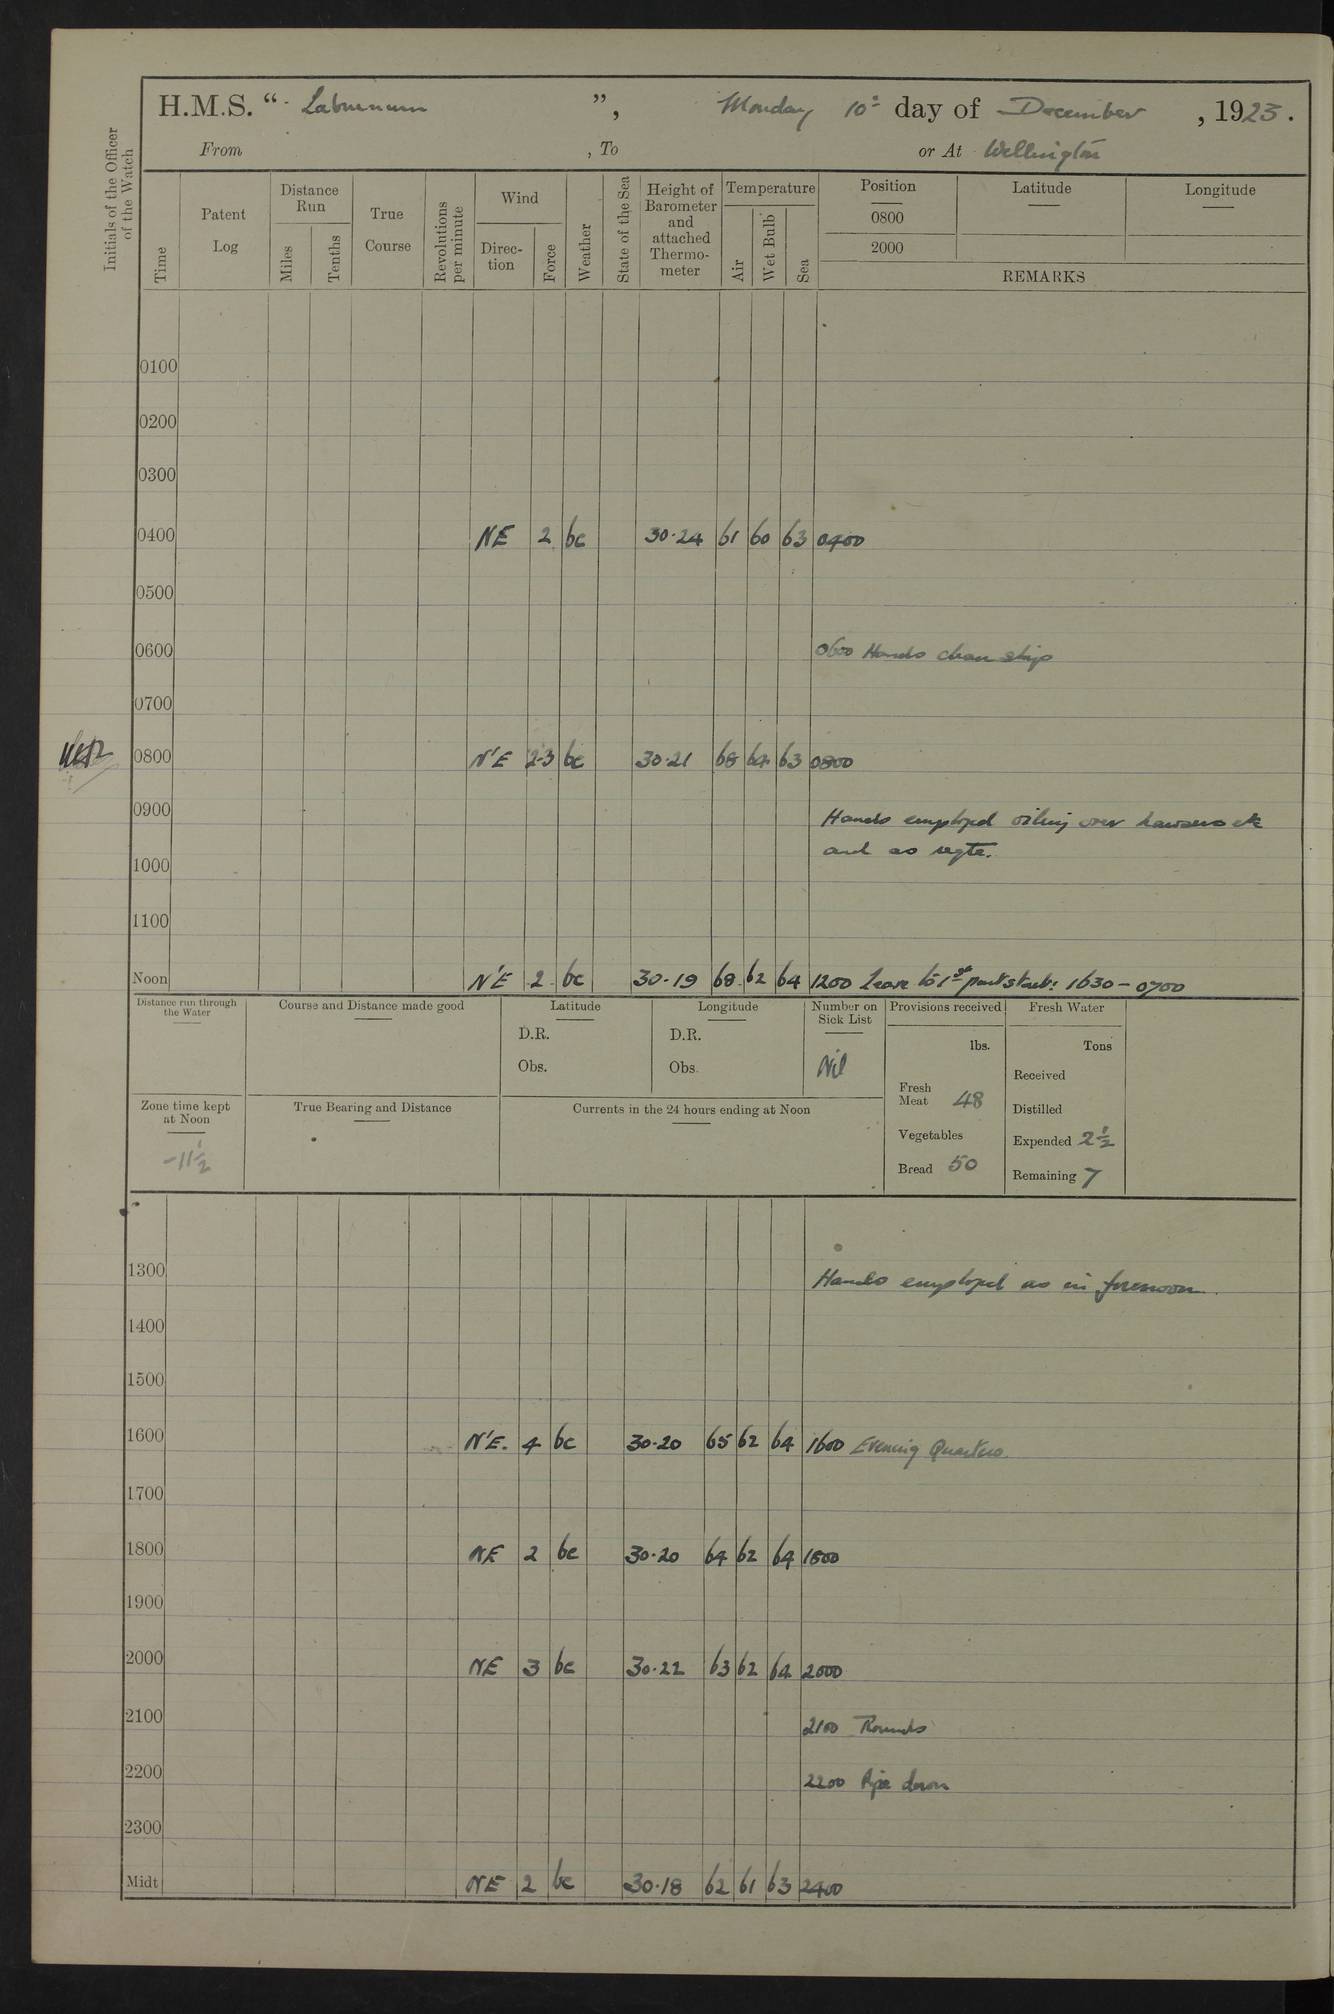 H.M.S. " Laburnum ", Monday 10th day of December, 1923.
From , To or At Wellington
Initials of the Officer of the Watch
Time
Patent Log
Distance Run
Miles
Tenths
True Course
Revolutions per minute
Wind
Direc-tion
Force
Weather
State of the Sea
Height of Barometer and attached Thermo-meter
Temperature
Air
Wet Bulb
Sea
Position Latitude Longitude
0800
2000
REMARKS
0100
0200
0300
0400 NE 2 bc 30.24 61 60 63 0400
0500
0600 0600 Hands clean ship
0700
0800 N'E 2-3 bc 30.21 68 64 63 0800
0900 Hands employed oiling over hawsers etc
and as reqte.
1000
1100
Noon N'E 2 bc 30.19 68 62 64 1200 Leave to 1st part starb: 1630 - 0700
Distance run through the Water
Course and Distance made good
Latitude
D.R.
Obs.
Longitude
D.R.
Obs.
Number on Sick List
Nil
Provisions received
lbs.
Fresh Meat 48
Vegetables
Bread 50
Fresh Water
Tons
Received
Distilled
Expended 2½
Remaining 7
Zone time kept at Noon
-11½
True Bearing and Distance
Currents in the 24 hours ending at Noon
1300 Hands employed as in forenoon.
1400
1500
1600 N'E. 4 bc 30.20 65 62 64 1600 Evening Quarters.
1700
1800 NE 2 bc 30.20 64 62 64 1800
1900
2000 NE 3 bc 30.22 63 62 64 2000
2100 2100 Rounds
2200 2200 Pipe down
2300
Midt NE 2 bc 30.18 62 61 63 2400